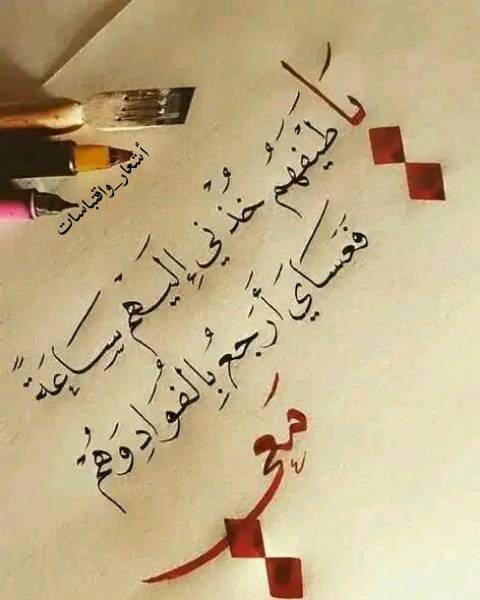 يَا طَيْفَهُمُ خُذْنِي إِلَيْهِمْ سَاعَةً
فَعَسَايَ أَرْجَعُ بِالفُؤَادِ وَهُمْ
مَعِي
أشعار_واقتباسات